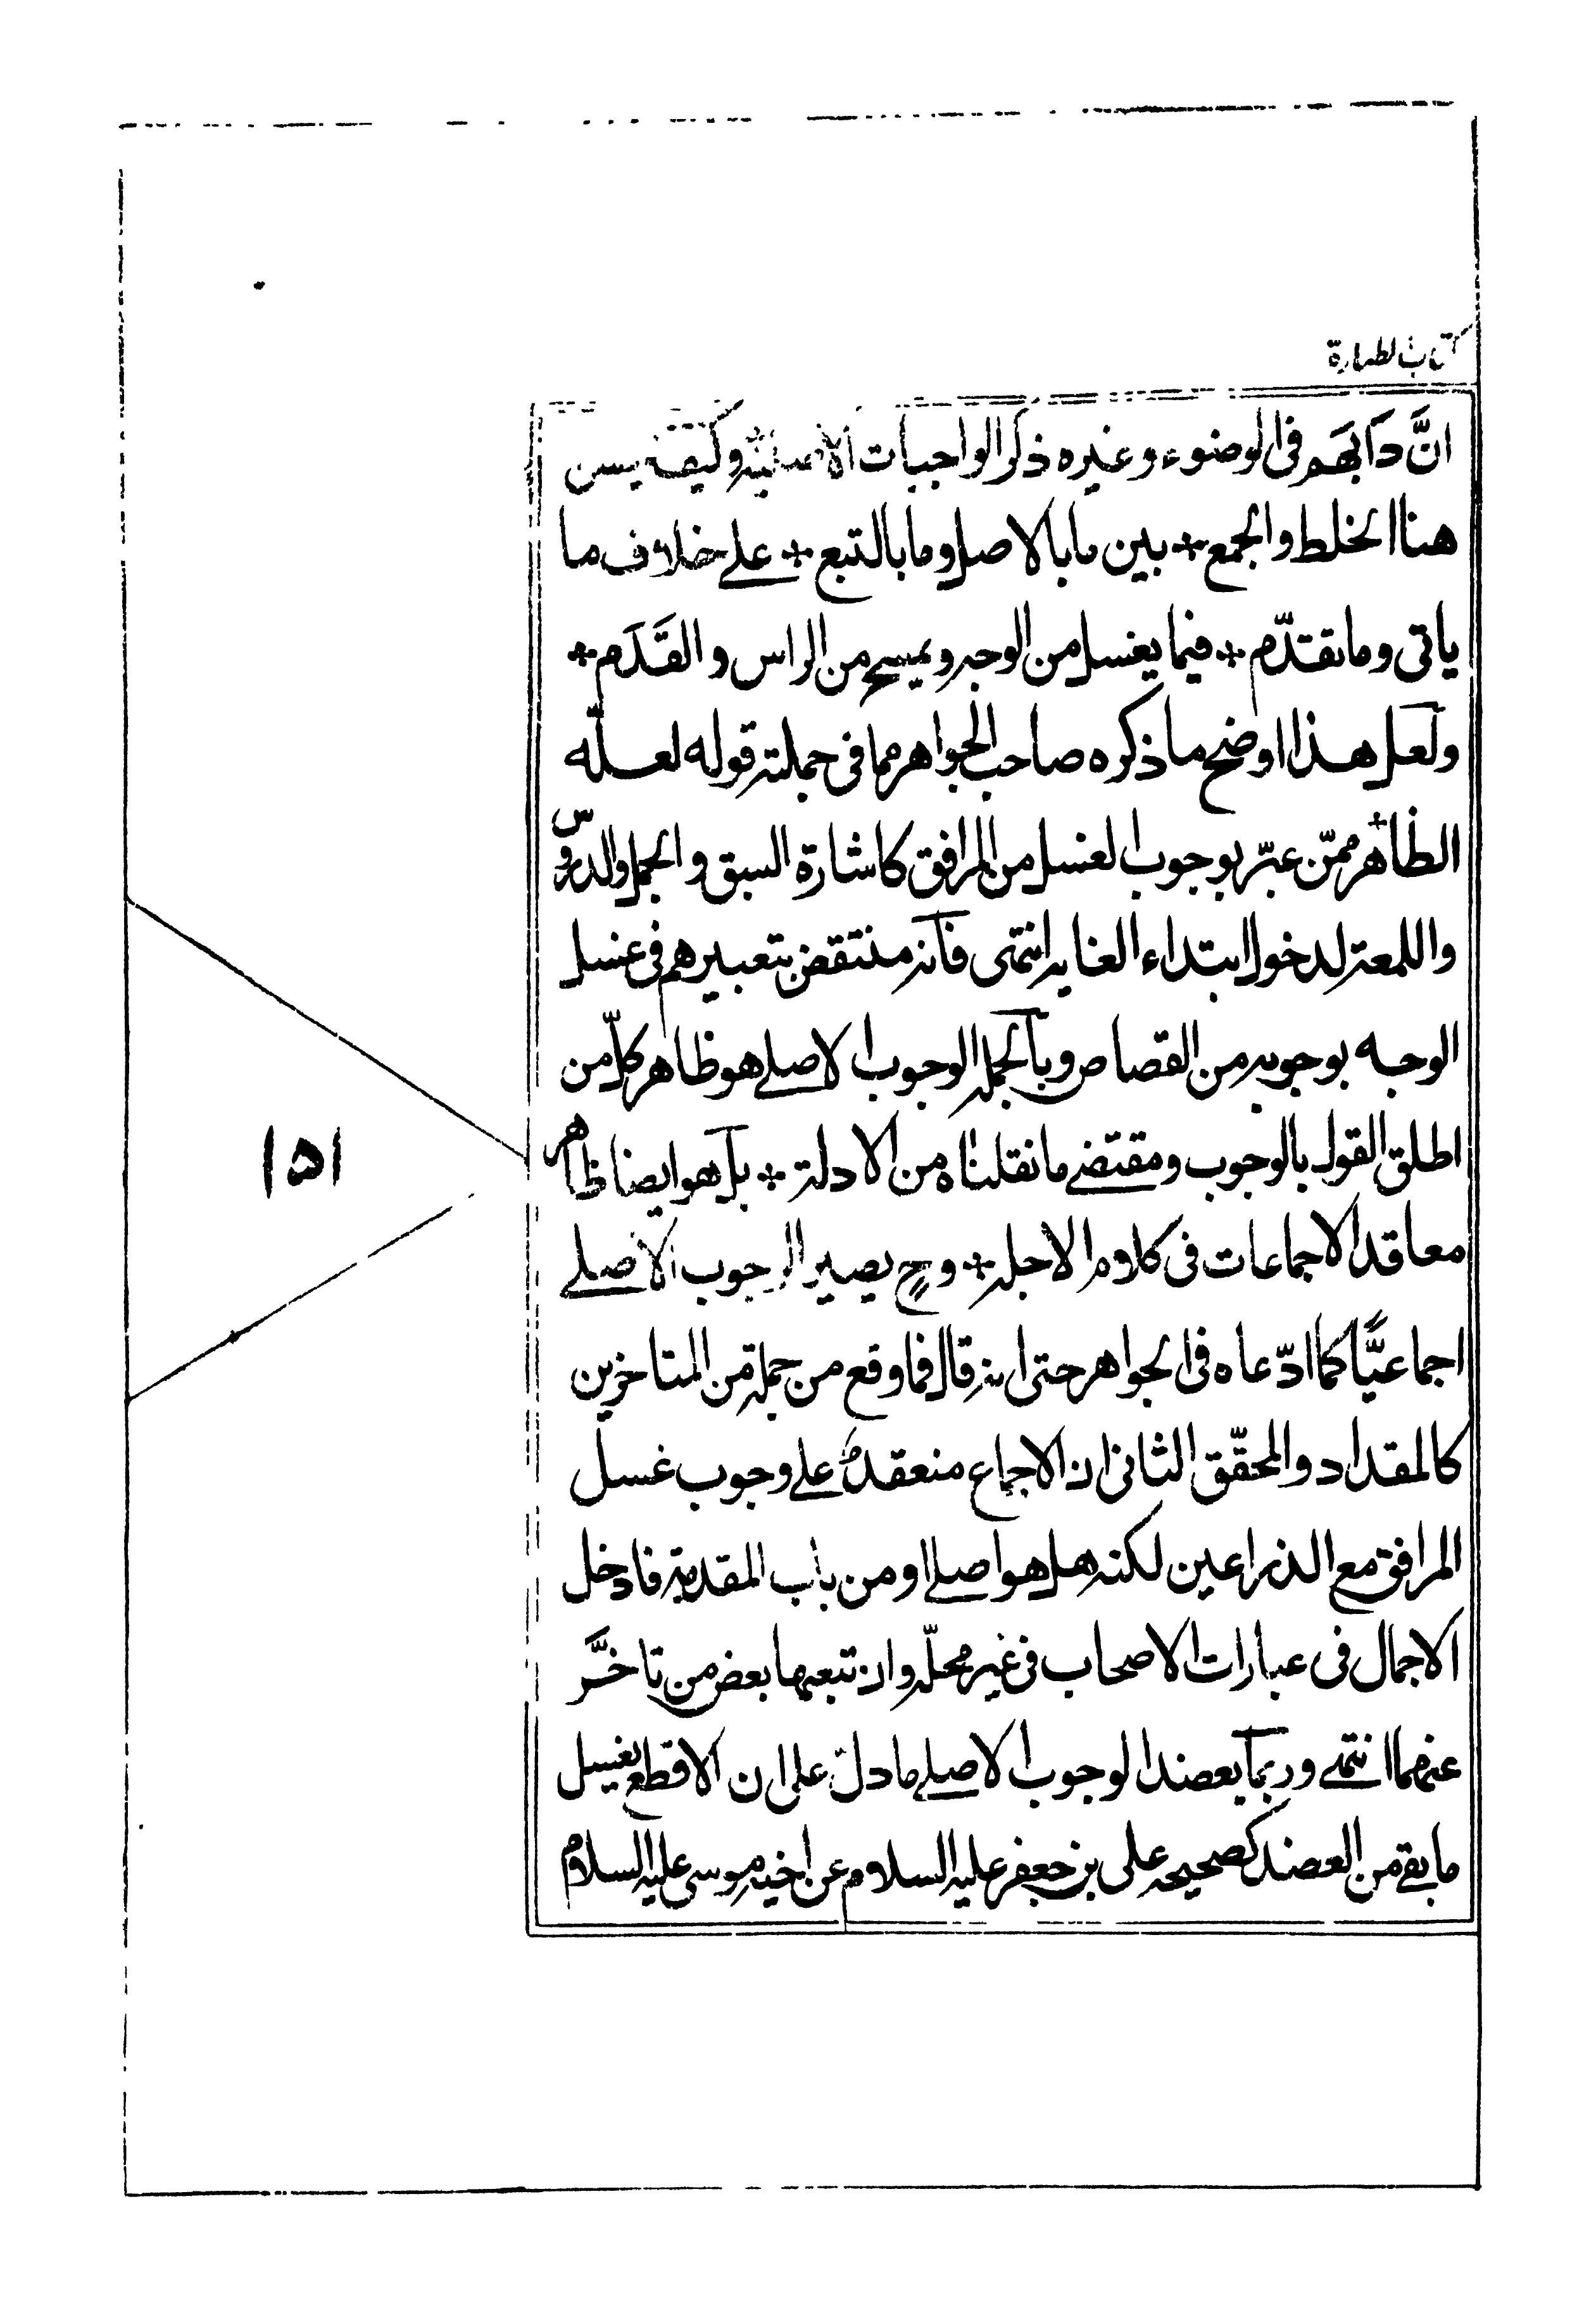 كتاب الطهارة
انَّ دَابَهم فى الوضوء وغيره ذكر الواجبات الاصليّة وكيف يسن
هنا الخلط والجمع * بين ما بالاصل وما بالتبع * على خلاف ما
ياتى وما تقدّم * فيما يغسل من الوجه ويمسح من الراس والقَدَم *
ولعل هذا اوضح ما ذكره صاحب الجواهر مما فى جملته قوله لعلّه
الظاهر ممّن عبّر بوجوب الغسل من المرافق كاشارة السبق والجمل والدروس
واللمعة لدخول ابتداء الغايه انتهى فانه منتقض بتعبيرهم فى غسل
الوجه بوجوبه من القصاص وبالجمله الوجوب الاصلے هو ظاهر كلّ من
اطلق القول بالوجوب ومقتضے ما نقلناه من الادلة * بل هو ايضا ظاهر
معاقد الاجماعات فى كلام الاجله * وح يصير الوجوب الاصلے
اجماعيًّا كما ادّعاه فى الجواهر حتى انه قال فما وقع من جملة من المتاخرين
كالمقداد والمحقّق الثانى ان الاجماع منعقد علے وجوب غسل
المرافق مع الذراعين لكنه هل هو اصلے او من باب المقدمة فادخل
الاجمال فى عبارات الاصحاب فى غير محلّه وان تبعهما بعض من تاخَّر
عنهما انتهے وربما يعضد الوجوب الاصلے ما دلّ على ان الاقطع يغسل
ما بقے من العضد كصحيحه على بن جعفر عليه السلام عن اخيه موسى عليه السلام
١٥١